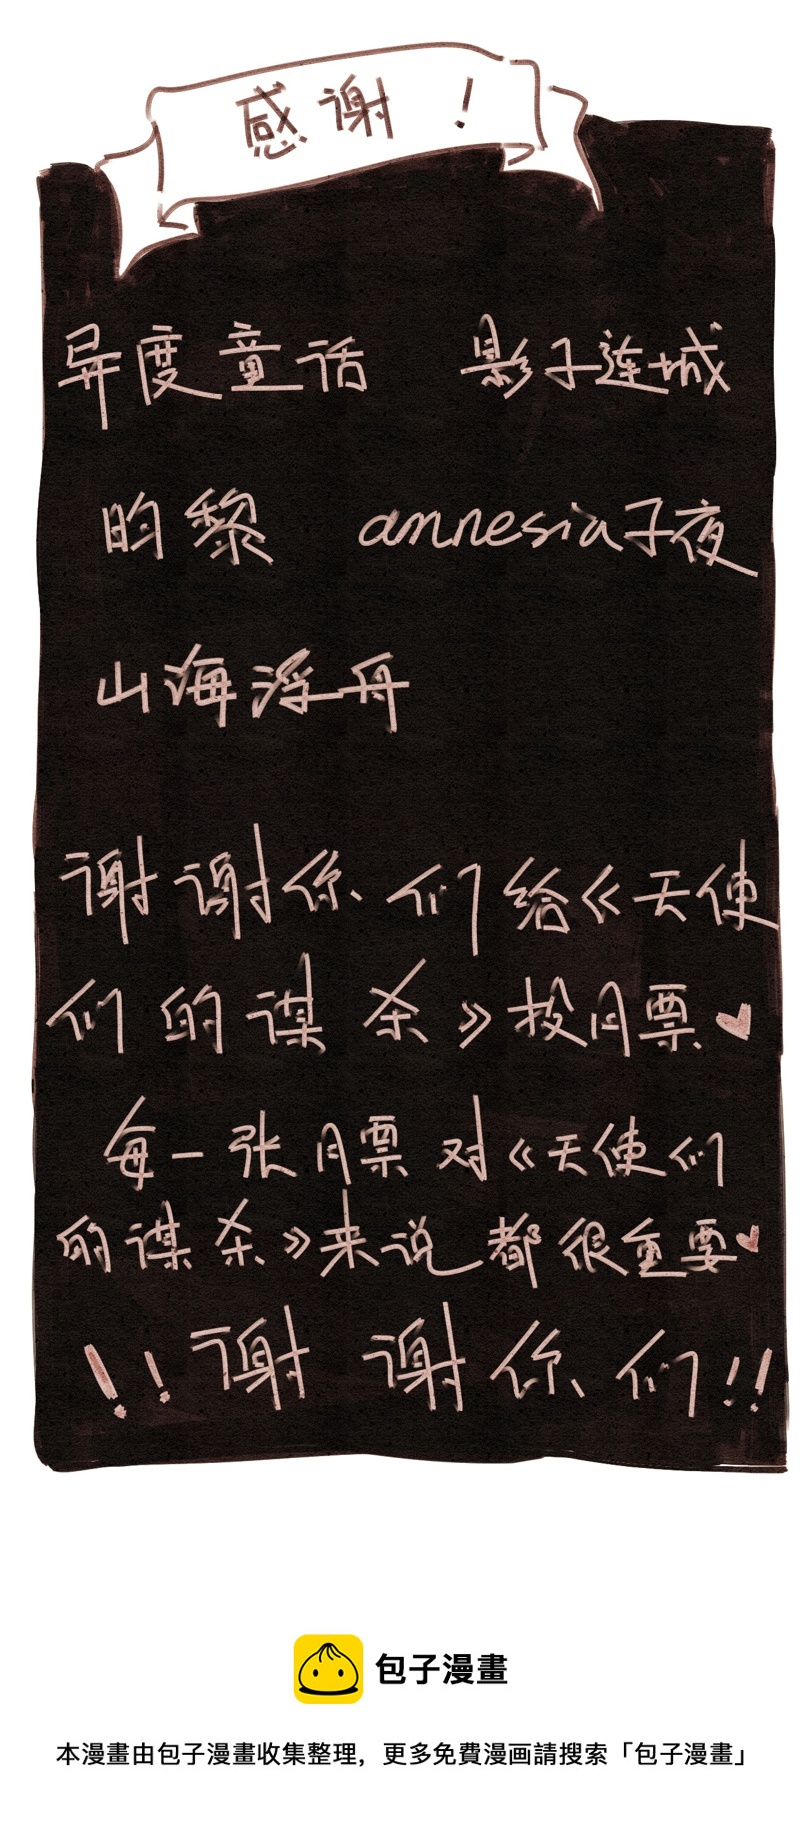 感谢！
异度童话 影子连城
昀黎 amnesia子夜
山海浮舟
谢谢你们给《天使
们的谋杀》投月票
每一张月票对《天使们
的谋杀》来说都很重要
！！谢谢你们！！
包子漫畫
本漫畫由包子漫畫收集整理，更多免費漫画請搜索「包子漫畫」